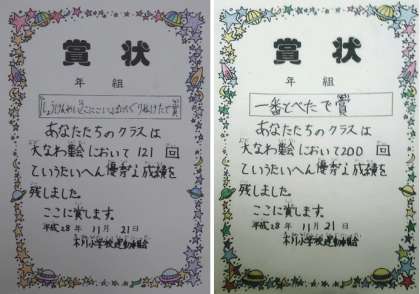 賞状
年 組
あなたたちのクラスは
大なわ集会において121回
というたいへん優秀な成績を
残しました。
ここに賞します。
平成28年 11月 21日
小学校運動委員会
賞状
年 組
一番とべたで賞
あなたたちのクラスは
大なわ集会において200回
というたいへん優秀な成績を
残しました。
ここに賞します。
平成28年 11月 21日
小学校運動委員会